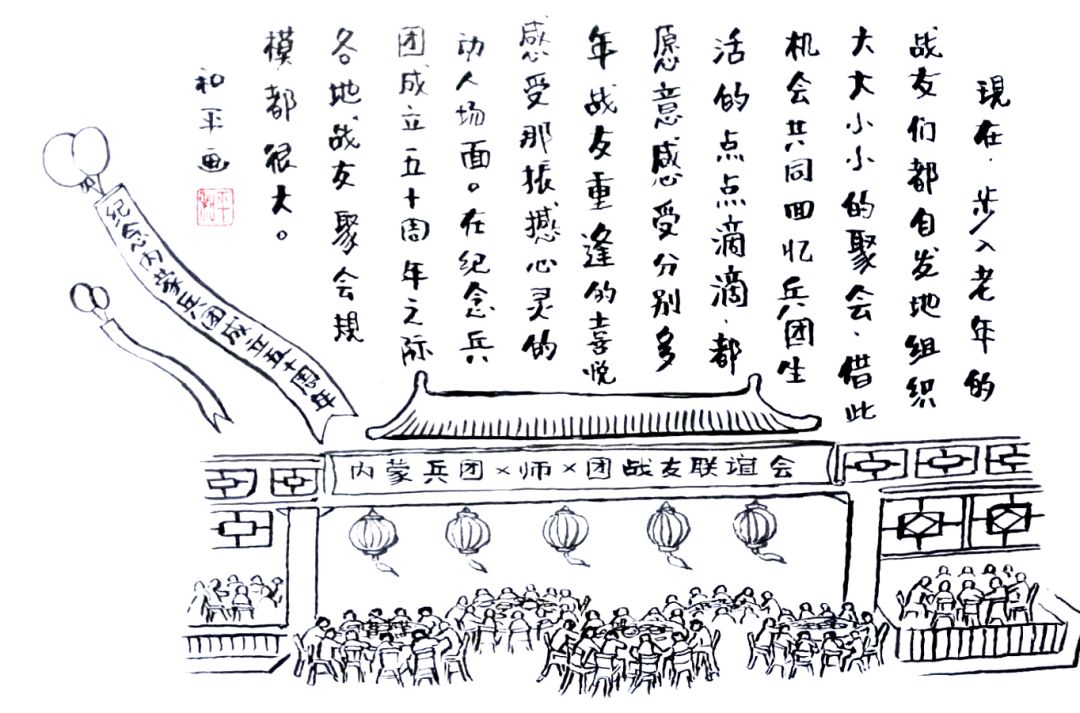 现在，步入老年的
战友们都自发地组织
大大小小的聚会，借此
机会共同回忆兵团生
活的点点滴滴，都
愿意感受分别多
年战友重逢的喜悦
感受那振撼心灵的
动人场面。在纪念兵
团成立五十周年之际
各地战友聚会规
模都很大。
和平画
和平
纪念内蒙兵团成立五十周年
内蒙兵团×师×团战友联谊会